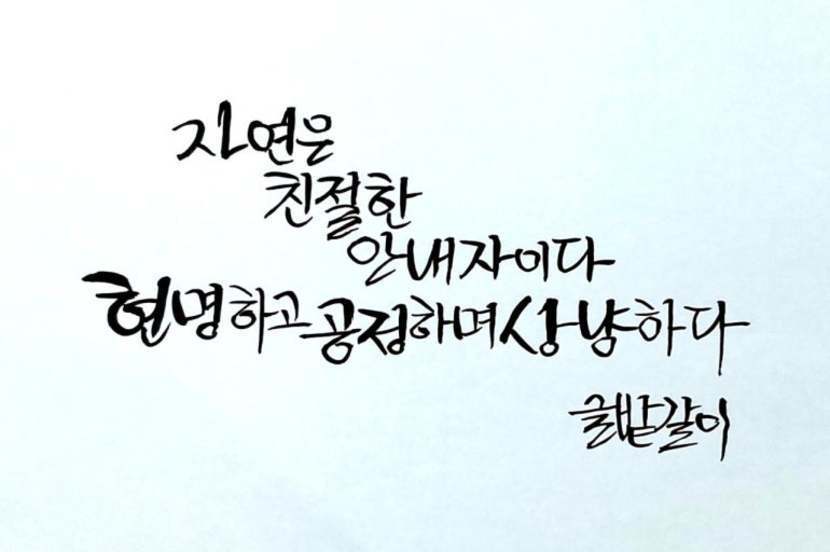 자연은
친절한
안내자이다
현명하고 공정하며 상냥하다
글밭갈이